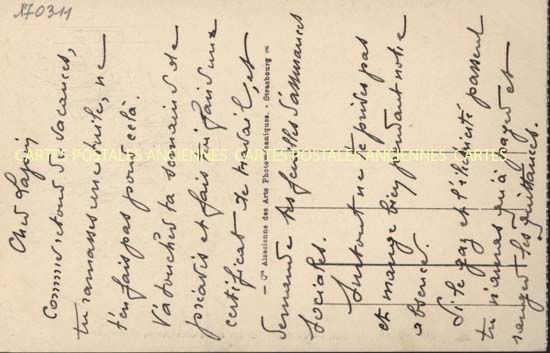 170311
Cher Lapin
Comme retour de vacances,
tu ramasses une tuile, ne
t'en fais pas pour celà.
Va toucher ta semaine de
préavis et fais toi faire un
certificat de travail, et
demande tes feuilles d'assurances
sociales.
Surtout ne te prives pas
et mange bien pendant notre
absence.
Si le gaz et l'électricité passent
tu n'auras qu'à payer et
ranger les quittances.
— Cie Alsacienne des Arts Photomécaniques. - Strasbourg —
CARTES POSTALES ANCIENNES CARTES POSTALES ANCIENNES CARTES